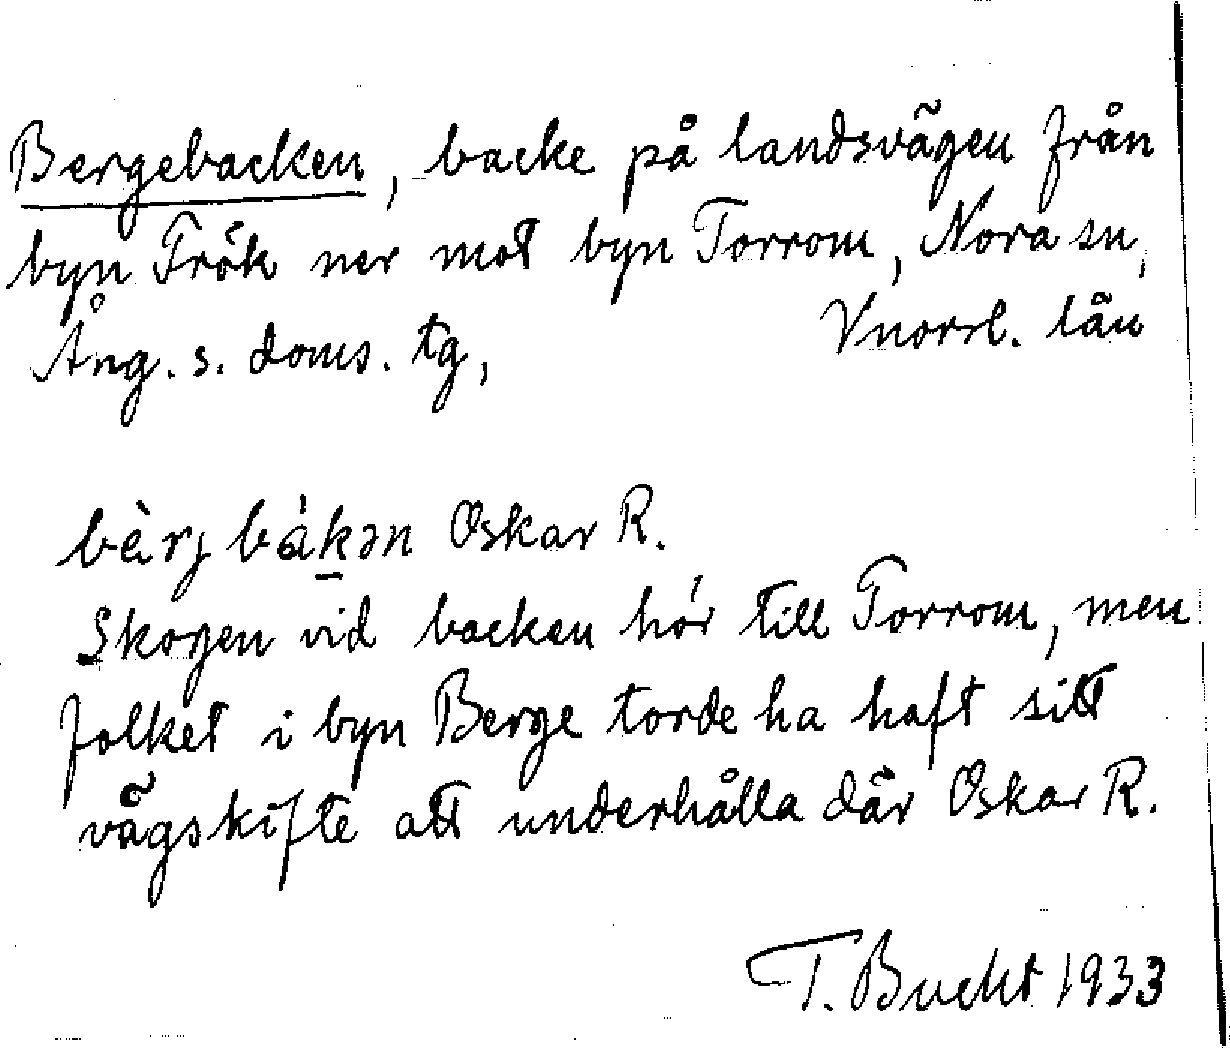 Bergebacken, backe på landsvägen från
byn Frök ner mot byn Torrom, Nora sn,
Ång. s. doms. tg, Vnorrl. län
bèrj bákən Oskar R.
Skogen vid backen hör till Torrom, men
folket i byn Berge torde ha haft sitt
vägskifte att underhålla där Oskar R.
T. Bucht 1933